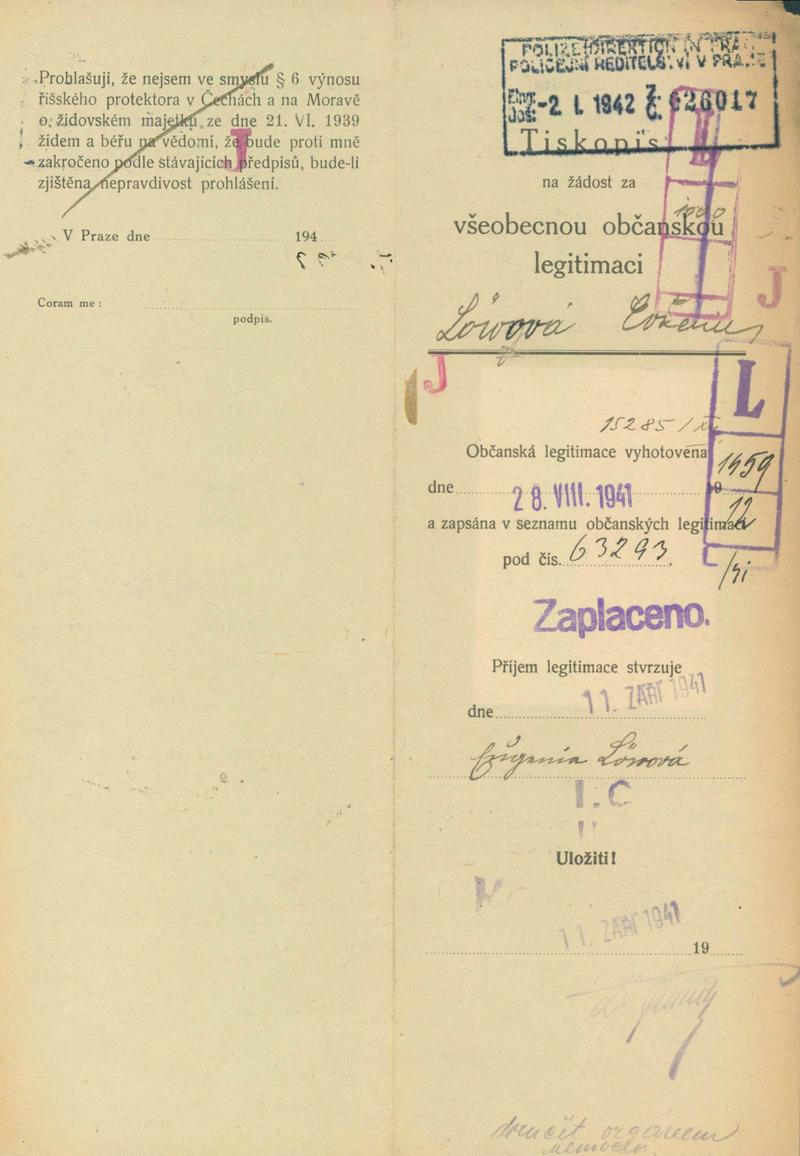 Prohlašuji, že nejsem ve smyslu § 6 výnosu
říšského protektora v Čechách a na Moravě
o židovském majetku ze dne 21. VI. 1939
židem a béřu na vědomí, že bude proti mně
zakročeno podle stávajících předpisů, bude-li
zjištěna nepravdivost prohlášení.
J
V Praze dne 194
Coram me:
podpis.
POLIZEIDIREKTION IN PRAG
POLICEJNÍ ŘEDITELSTVÍ V PRAZE
-2. I. 1942 626017
Tiskopis
na žádost za
1000
všeobecnou občanskou
legitimaci
J
Löwová Evženie
J
L
15285/
Občanská legitimace vyhotovena
1459
dne 28. VIII. 1941 19
12
a zapsána v seznamu občanských legitimací
pod čís. 63293.
Zaplaceno.
Příjem legitimace stvrzuje
dne 11. ZÁŘÍ 1941
Eugenia Löwová
I. C
Uložiti!
11. ZÁŘÍ 1941
19
doručit orgánem